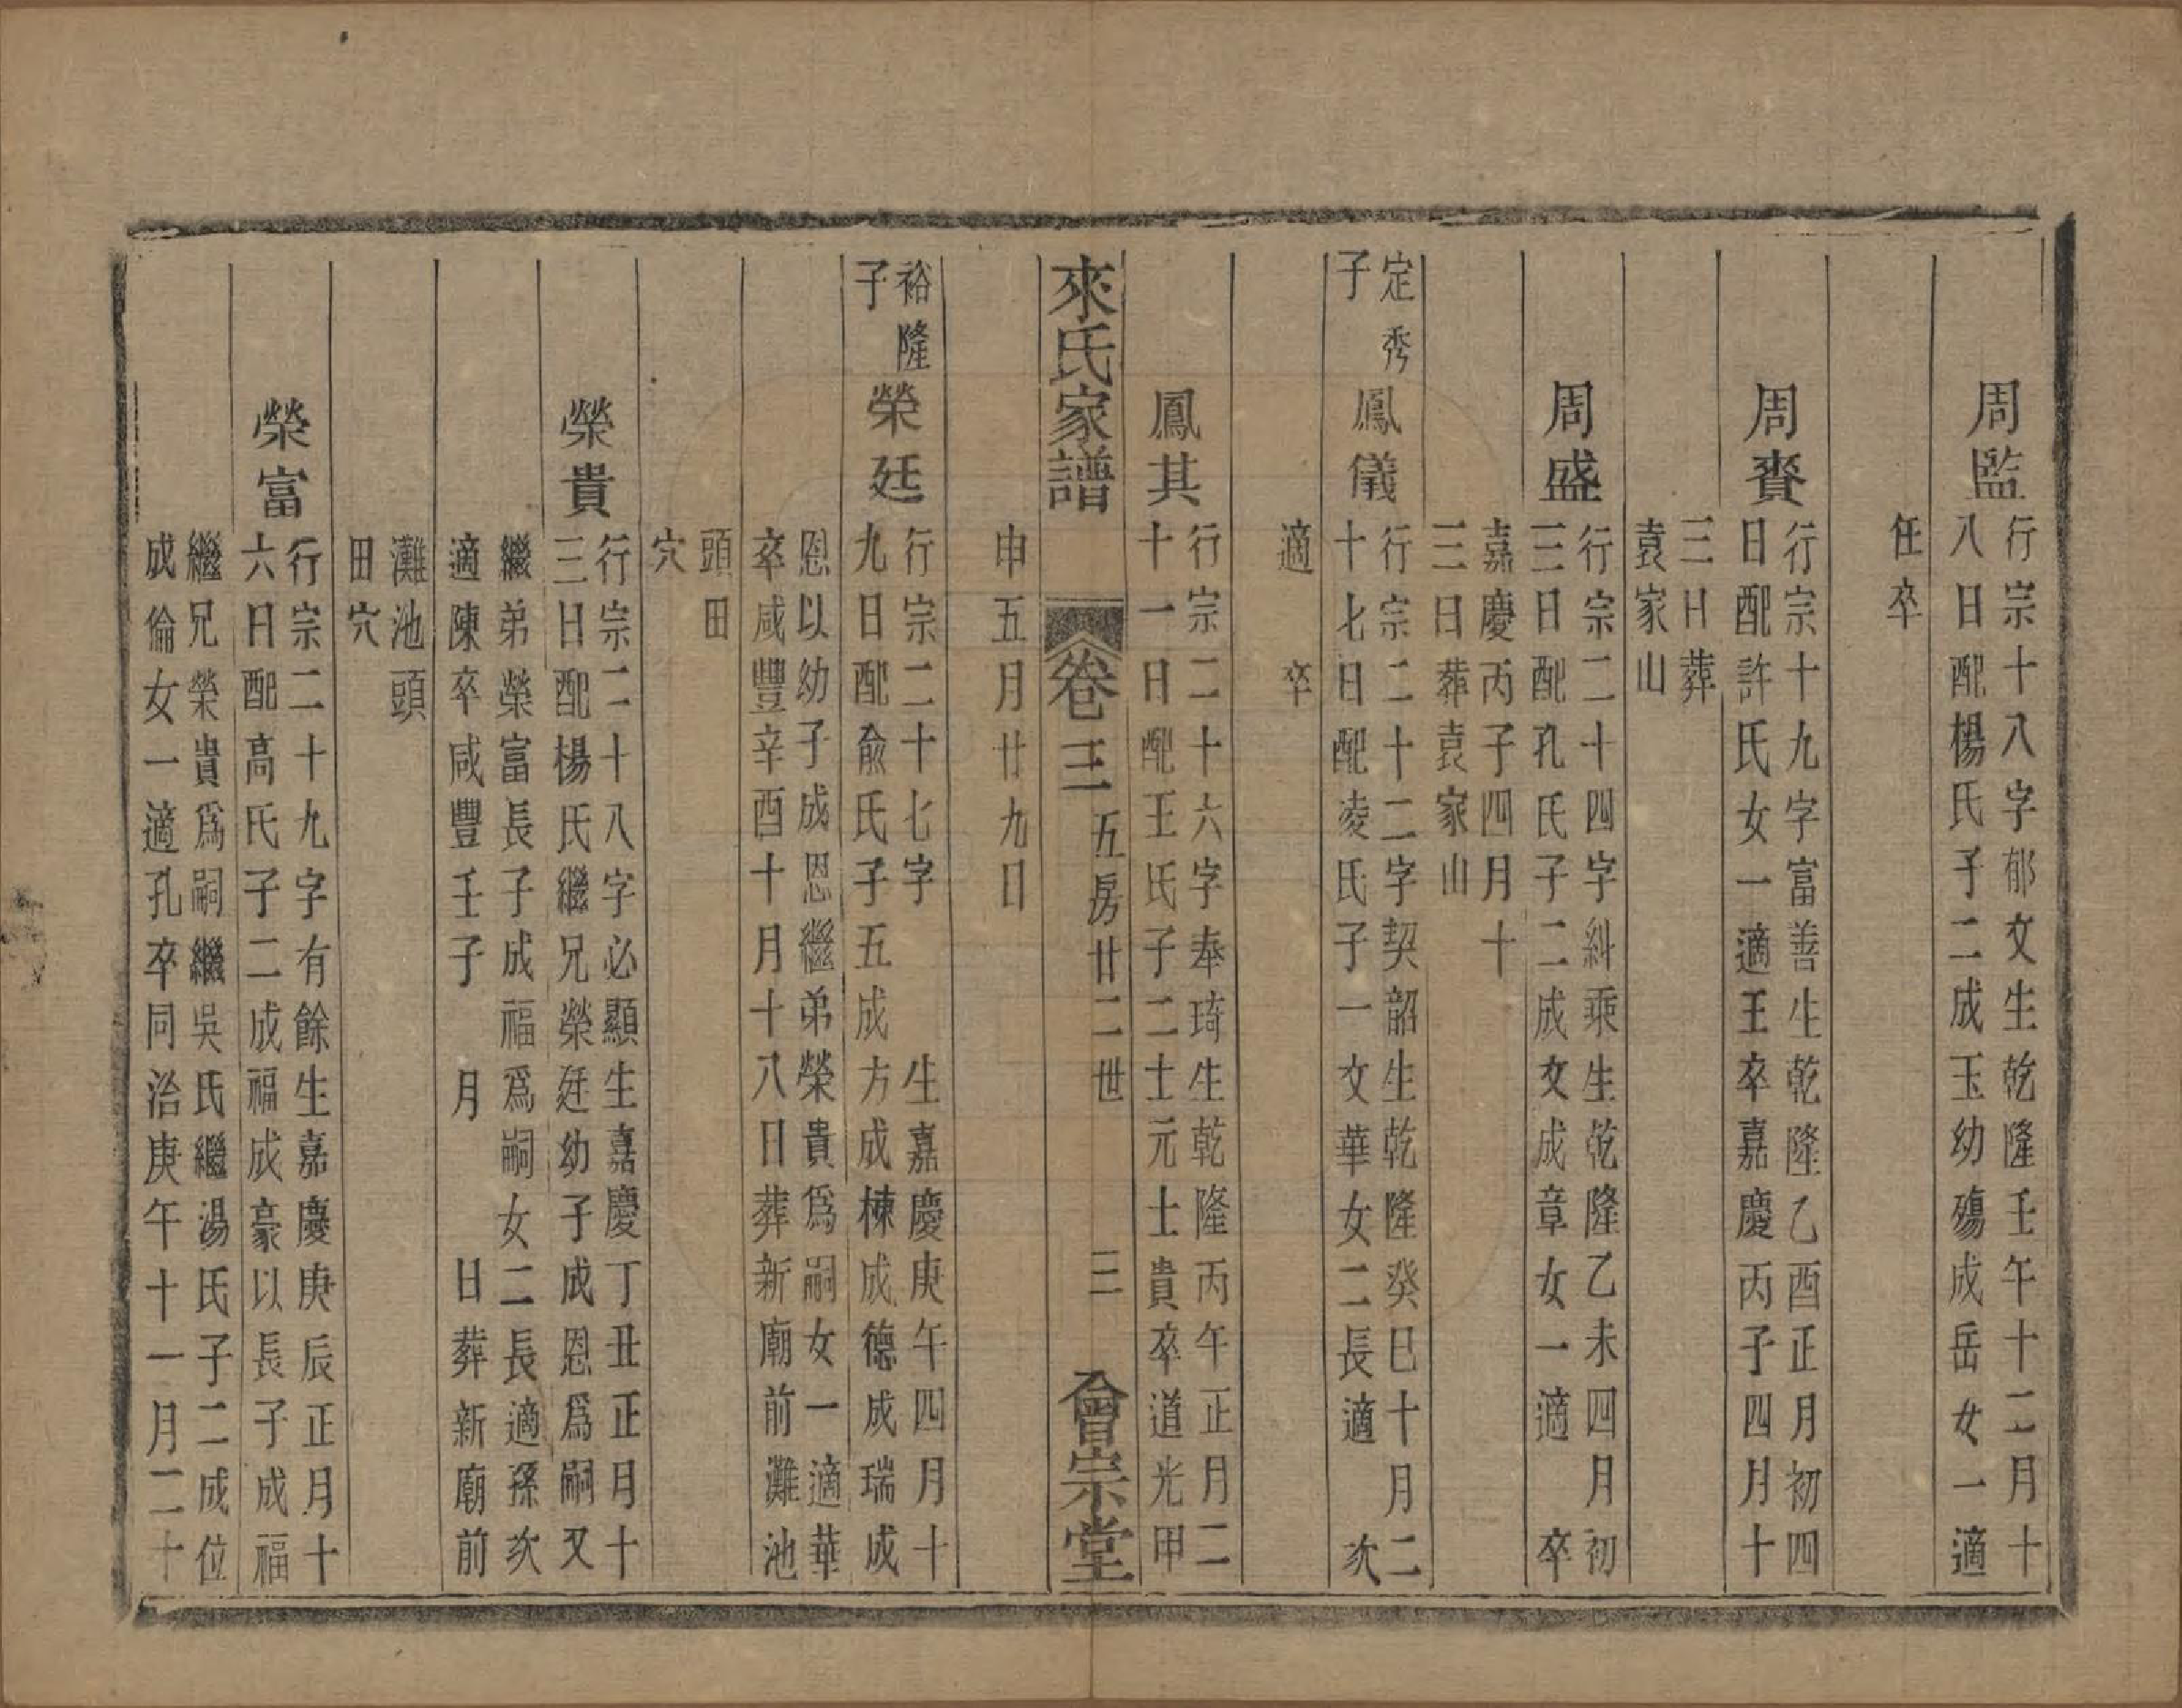 周監
行宗十八字郁文生乾隆壬午十二月十
八日配楊氏子二成玉幼殤成岳女一適
任卒
周賚
行宗十九字富善生乾隆乙酉正月初四
日配許氏女一適王卒嘉慶丙子四月十
三日葬
袁家山
周盛
行宗二十四字糾乘生乾隆乙未四月初
三日配孔氏子二成文成章女一適　卒
嘉慶丙子四月十
三日葬袁家山
定秀
子
鳳儀
行宗二十二字契韶生乾隆癸巳十月二
十七日配凌氏子一文華女二長適　次
適　卒
鳳其
行宗二十六字奉琦生乾隆丙午正月二
十一日配王氏子二士元士貴卒道光甲
來氏家譜
卷三
五房廿二世
三
會宗堂
申五月廿九日
裕隆
子
榮廷
行宗二十七字　生嘉慶庚午四月十
九日配俞氏子五成方成棟成德成瑞成
恩以幼子成恩繼弟榮貴爲嗣女一適華
卒咸豐辛酉十月十八日葬新廟前灘池
頭田
穴
榮貴
行宗二十八字必顯生嘉慶丁丑正月十
三日配楊氏繼兄榮廷幼子成恩爲嗣又
繼弟榮富長子成福爲嗣女二長適孫次
適陳卒咸豐壬子　月　日葬新廟前
灘池頭
田穴
榮富
行宗二十九字有餘生嘉慶庚辰正月十
六日配高氏子二成福成豪以長子成福
繼兄榮貴爲嗣繼吳氏繼湯氏子二成位
成倫女一適孔卒同治庚午十一月二十